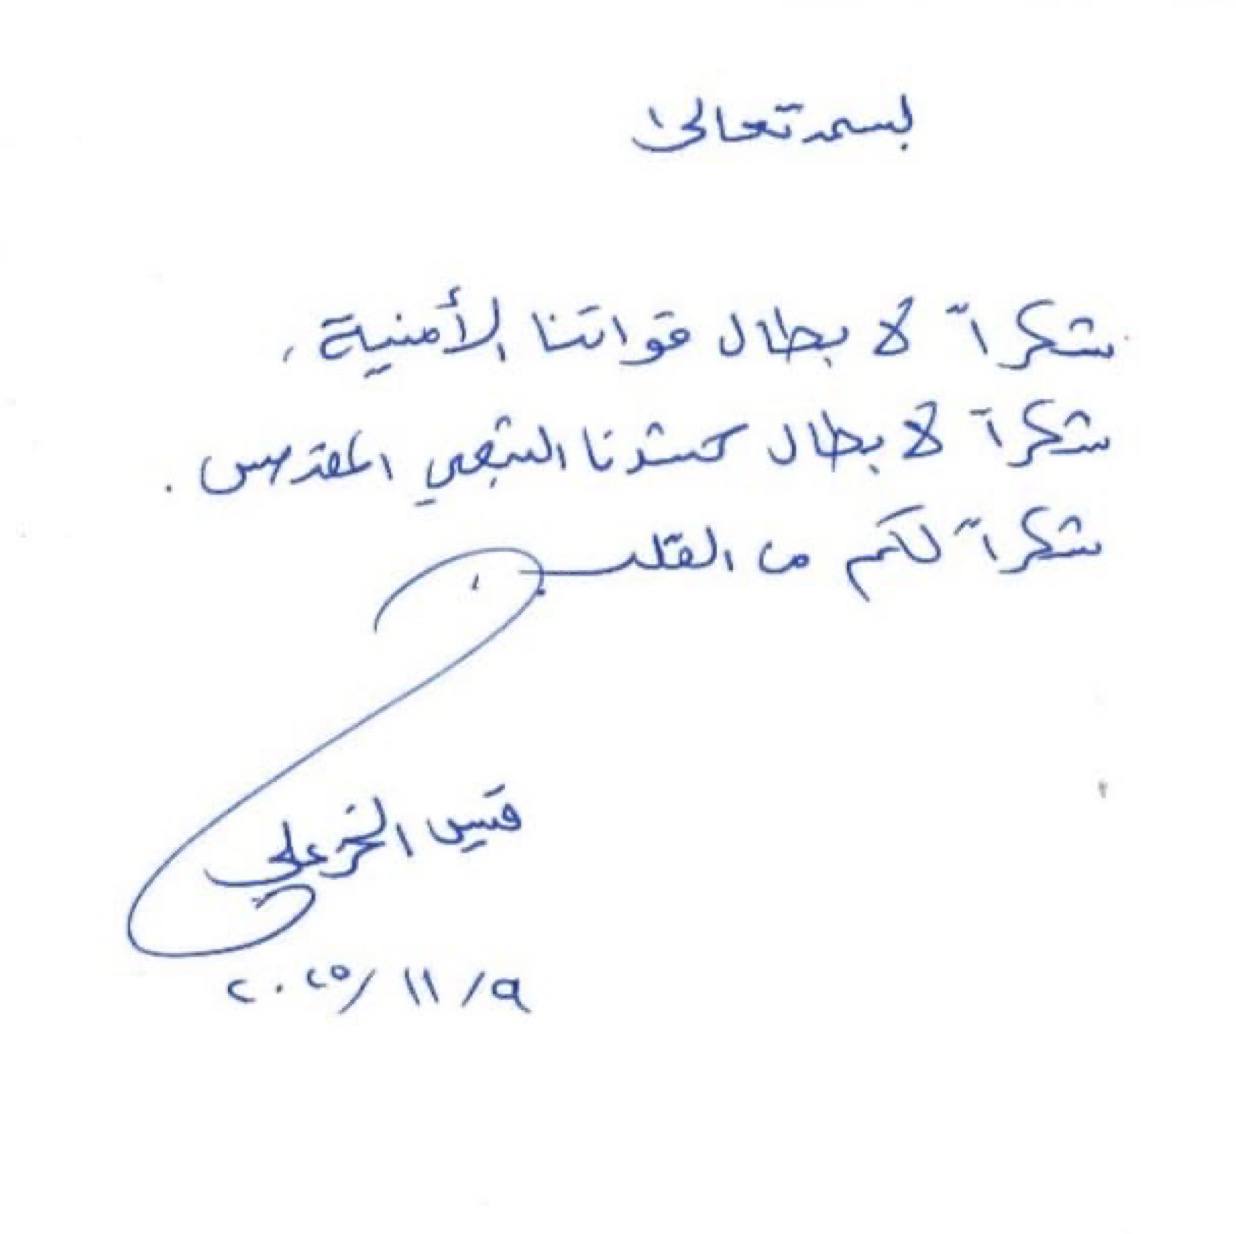 بسمه تعالى
شكراً لأبطال قواتنا الأمنية،
شكراً لأبطال حشدنا الشعبي المقدس.
شكراً لكم من القلب
قيس الخزعلي
٢٠٢٥/١١/٩